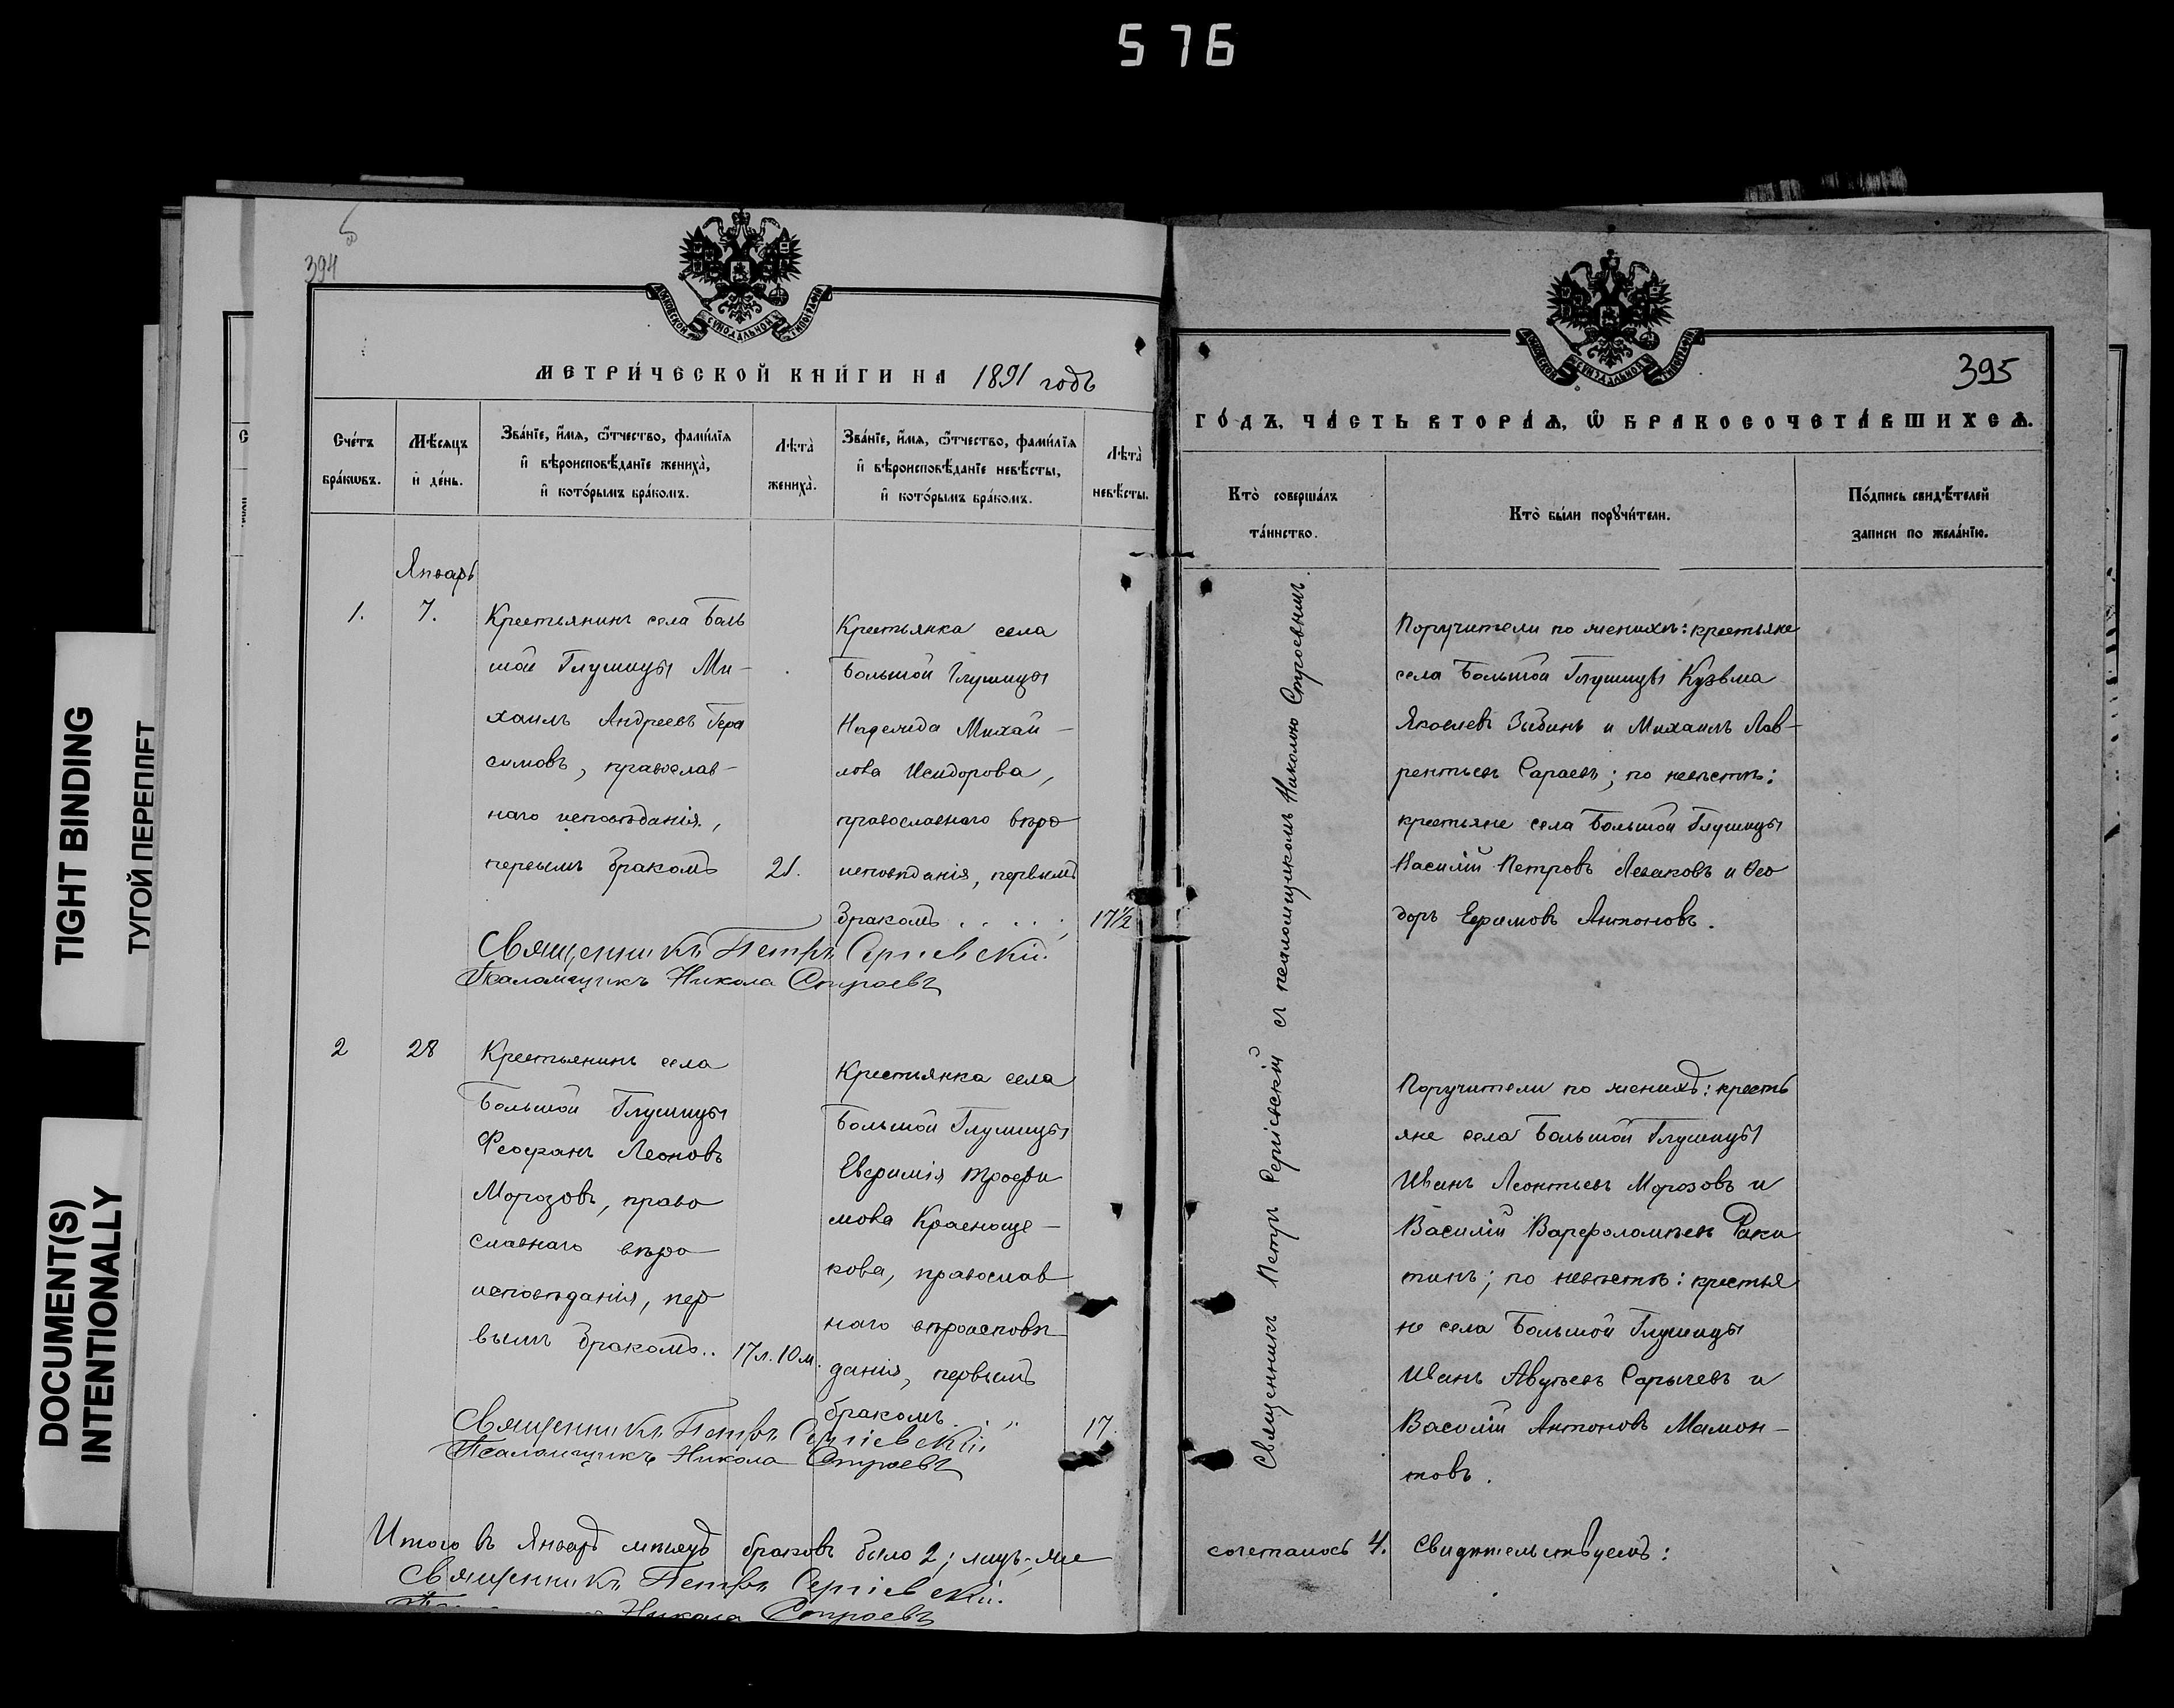 576
TIGHT BINDING
ТУГОЙ ПЕРЕПЛЕТ
DOCUMENT(S)
INTENTIONALLY
394
МОСКОВСКОЙ СѴНОДАЛЬНОЙ ТИПОГРАФІИ
МЕТРИ́ЧЕСКОЙ КНИ́ГИ НА 1891 годъ
Сче́тъ
бра́кѡвъ.
Мѣ́сяцъ
и҆ де́нь.
Зва́нїе, и҆́мѧ, ѻ҆́тчество, фами́лїѧ
и҆ вѣроисповѣ́данїе жениха̀,
и҆ кото́рымъ бра́комъ.
Лѣта̀
жениха̀.
Зва́нїе, и҆́мѧ, ѻ҆́тчество, фами́лїѧ
и҆ вѣроисповѣ́данїе невѣ́сты,
и҆ кото́рымъ бра́комъ.
Лѣта̀
невѣ́сты.
Январь
1.
7.
Крестьянинъ села Боль
шой Глушицы Ми-
хаилъ Андреевъ Гера
симовъ, православ-
наго исповѣданія,
первымъ бракомъ
21.
Крестьянка села
Большой Глушицы
Надежда Михай-
лова Исидорова,
православнаго вѣро
исповѣданія, первымъ
бракомъ . . . . .
17½
Священникъ Петръ Сергіевскій.
Псаломщикъ Никола Строевъ
2
28
Крестьянинъ села
Большой Глушицы
Феофанъ Леоновъ
Морозовъ, право
славнаго вѣро
исповѣданія, пер
вымъ бракомъ..
17 л. 10 м.
Крестьянка села
Большой Глушицы
Евфимія Трофи
мова Красноще-
кова, православ
наго вѣроисповѣ
данія, первымъ
бракомъ.
17
Священникъ Петръ Сергіевскій.
Псаломщикъ Никола Строевъ
Итого въ Январѣ мѣсяцѣ браковъ было 2; лицъ же
Священникъ Петръ Сергіевскій.
Никола Строевъ
МОСКОВСКОЙ СѴНОДАЛЬНОЙ ТИПОГРАФІИ
395
ГО́ДЪ, ЧА́СТЬ ВТОРА́Ѧ, Ѡ҆ БРАКОСОЧЕТА́ВШИХСѦ.
Кто̀ соверша́лъ
та́инство.
Кто̀ бы́ли порꙋчи́тели.
По́дпись свидѣ́телей
записи по жела́нїю.
Священникъ Петръ Сергіевскій съ псаломщикомъ Николою Строевымъ.
Поручители по женихѣ: крестьяне
села Большой Глушицы Кузьма
Яковлевъ Зыбинъ и Михаилъ Лав-
рентьевъ Сараевъ; по невѣстѣ:
крестьяне села Большой Глушицы
Василій Петровъ Леваковъ и Ѳео
доръ Ефимовъ Антоновъ.
Поручители по женихѣ: кресть
яне села Большой Глушицы
Иванъ Леонтьевъ Морозовъ и
Василій Варфоломѣевъ Раки
тинъ; по невѣстѣ: крестья
не села Большой Глушицы
Иванъ Авдѣевъ Сарычевъ и
Василій Антоновъ Мамон-
товъ.
сочеталось 4.
Свидѣтельствуемъ: